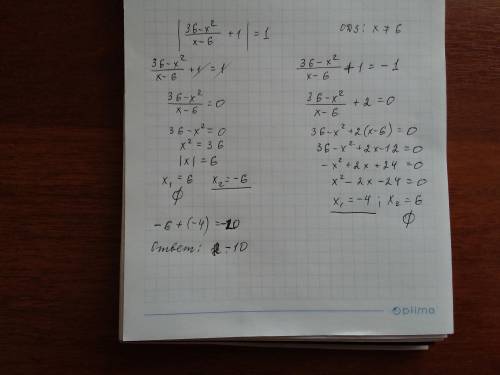 |36-x²/x-6 + 1| = 1
ОДЗ: x ≠ 6
36-x²/x-6 + 1 = 1
36-x²/x-6 = 0
36-x² = 0
x² = 36
|x| = 6
x₁ = 6 x₂ = -6
∅
36-x²/x-6 + 1 = -1
36-x²/x-6 + 2 = 0
36-x²+2(x-6) = 0
36-x²+2x-12 = 0
-x²+2x+24 = 0
x²-2x-24 = 0
x₁ = -4 ; x₂ = 6
∅
-6+(-4) = -10
Ответ: -10
Optima